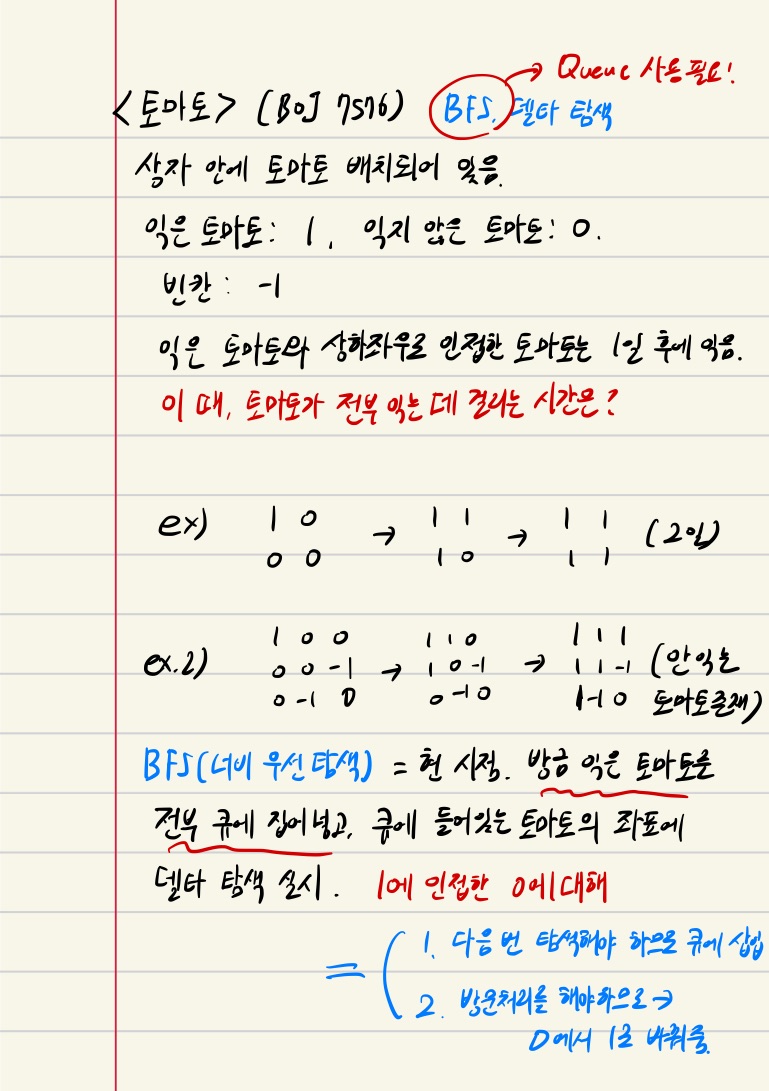 → Queue 사용필요!
<토마토> (BOJ 7576) BFS, 델타 탐색
상자 안에 토마토 배치되어 있음.
익은 토마토: 1, 익지 않은 토마토: 0.
빈칸: -1
익은 토마토와 상하좌우로 인접한 토마토는 1일 후에 익음.
이 때, 토마토가 전부 익는 데 걸리는 시간은?
ex) 1 0 → 1 1 → 1 1 (2일)
0 0 1 0 1 1
ex.2) 1 0 0 → 1 1 0 → 1 1 1 (안익는
0 0 -1 1 0 -1 1 1 -1
0 -1 0 0 -1 0 1 -1 0 토마토존재)
BFS(너비 우선 탐색) = 현 시점. 방금 익은 토마토를
전부 큐에 집어넣고, 큐에 들어있는 토마토의 좌표에
델타 탐색 실시. 1에 인접한 0에 대해
= ( 1. 다음 번 탐색해야 하므로 큐에 삽입
2. 방문처리를 해야하므로 →
0에서 1로 바꿔줌.